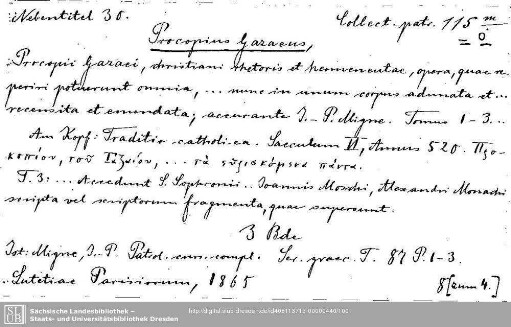 Nebentitel 30.
Collect. patr. 115 m
0
Procopius Gazaeus,
Procopii Gazaei, christiani rhetoris et hermeneutae, opera, quae re-
periri potuerunt omnia, ... nunc in unum corpus adunata et ...
recensita et emendata, accurante J.-P. Migne. Tomus 1-3...
Am Kopf: Traditio catholica. Saeculum VI, Annus 520. Προ-
κοπίου, τοῦ Γαζαίου, ... τὰ εὑρισκόμενα πάντα.
T. 3: ... Accedunt S. Sophronii .. Joannis Moschi, Alexandri Monachi
scripta vel scriptorum fragmenta, quae supersunt.
3 Bde
Jst: Migne, J.-P. Patrol. curs. compl. Ser. graec. T. 87 P. 1-3.
Lutetiae Parisiorum, 1865
8 [zum 4.]
SLUB
Sächsische Landesbibliothek –
Staats- und Universitätsbibliothek Dresden